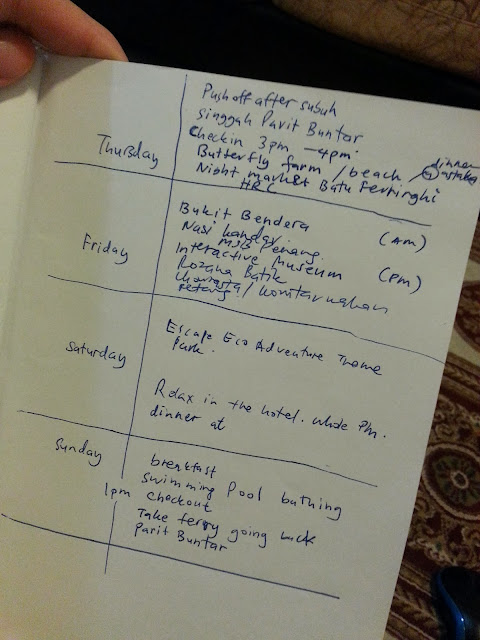 Thursday
Push off after subuh
singgah Parit Buntar
Checkin 3pm - 4pm.
Butterfly farm / beach / dinner
Night market Batu Ferringhi
HRC
Friday
Bukit Bendera (AM)
Nasi kandar
Penang
Interactive Museum (PM)
Rozana Batik
Chowrasta / Komtar
petang
Saturday
Escape Eco Adventure Theme
Park.
Relax in the hotel. Whole Pm.
dinner at
Sunday
breakfast
Swimming Pool bathing
1pm checkout
Take ferry going back
Parit Buntar